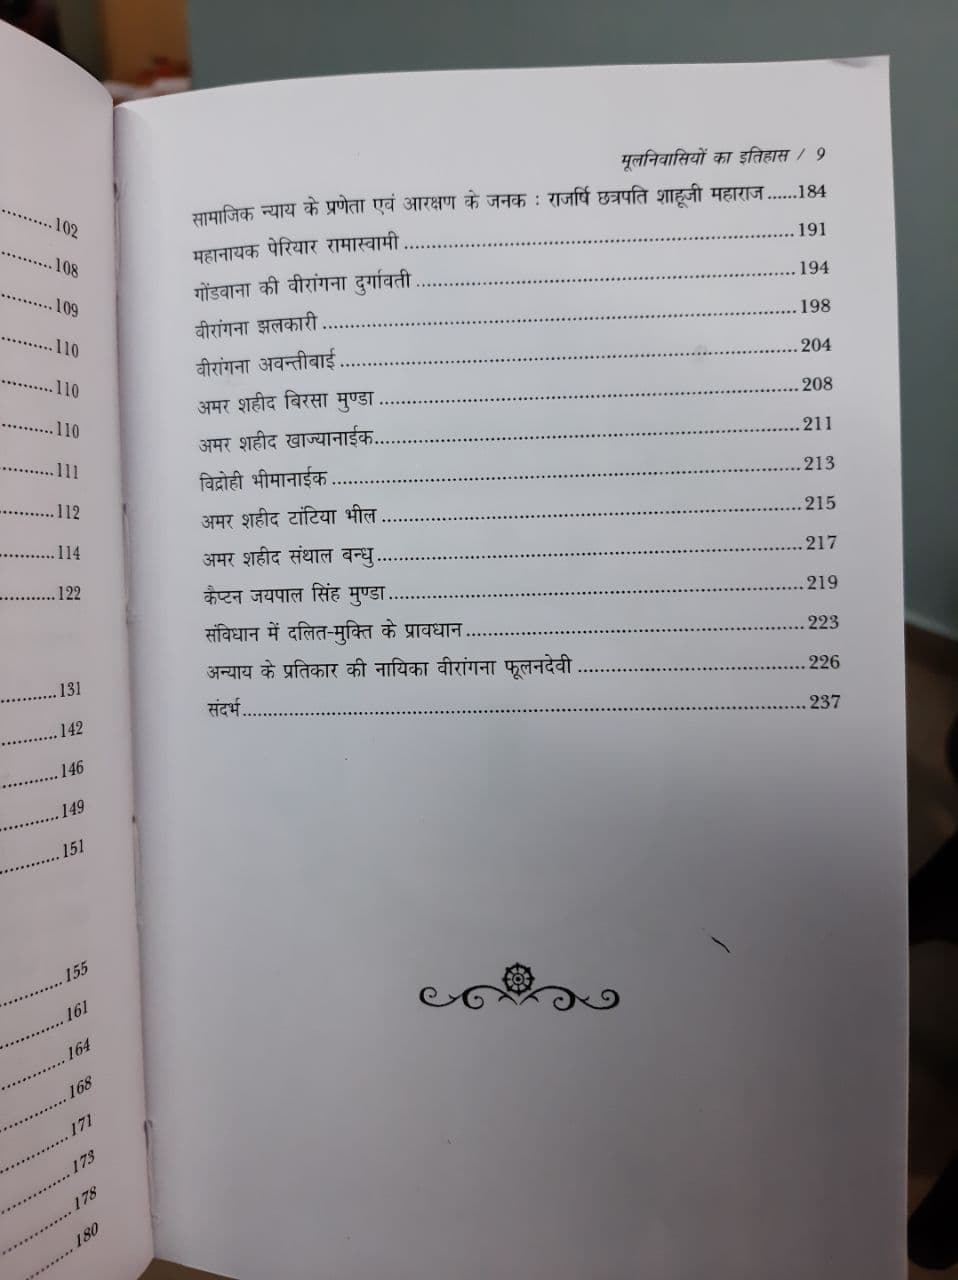 102
108
109
110
110
110
111
112
114
122
131
142
146
149
151
155
161
164
168
171
173
178
180
मूलनिवासियों का इतिहास / 9
सामाजिक न्याय के प्रणेता एवं आरक्षण के जनक : राजर्षि छत्रपति शाहूजी महाराज ......184
महानायक पेरियार रामास्वामी ........ 191
गोंडवाना की वीरांगना दुर्गावती ........ 194
वीरांगना झलकारी ........ 198
वीरांगना अवन्तीबाई ........ 204
अमर शहीद बिरसा मुण्डा ........ 208
अमर शहीद खाज्यानाईक ........ 211
विद्रोही भीमानाईक ........ 213
अमर शहीद टांटिया भील ........ 215
अमर शहीद संथाल बन्धु ........ 217
कैप्टन जयपाल सिंह मुण्डा ........ 219
संविधान में दलित-मुक्ति के प्रावधान ........ 223
अन्याय के प्रतिकार की नायिका वीरांगना फूलनदेवी ........ 226
संदर्भ ........ 237